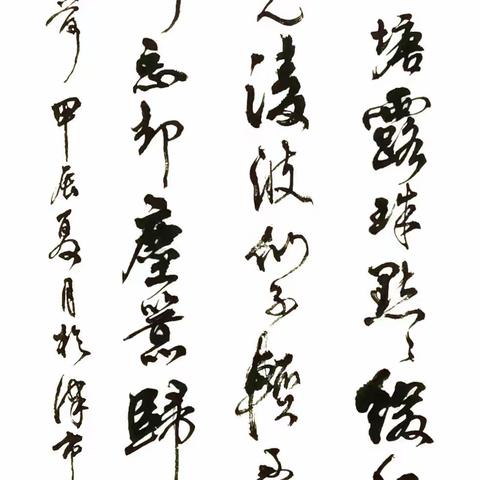 塘露珠點〻綴
凌波仙子輕
忘却塵囂歸
甲辰夏月於津市